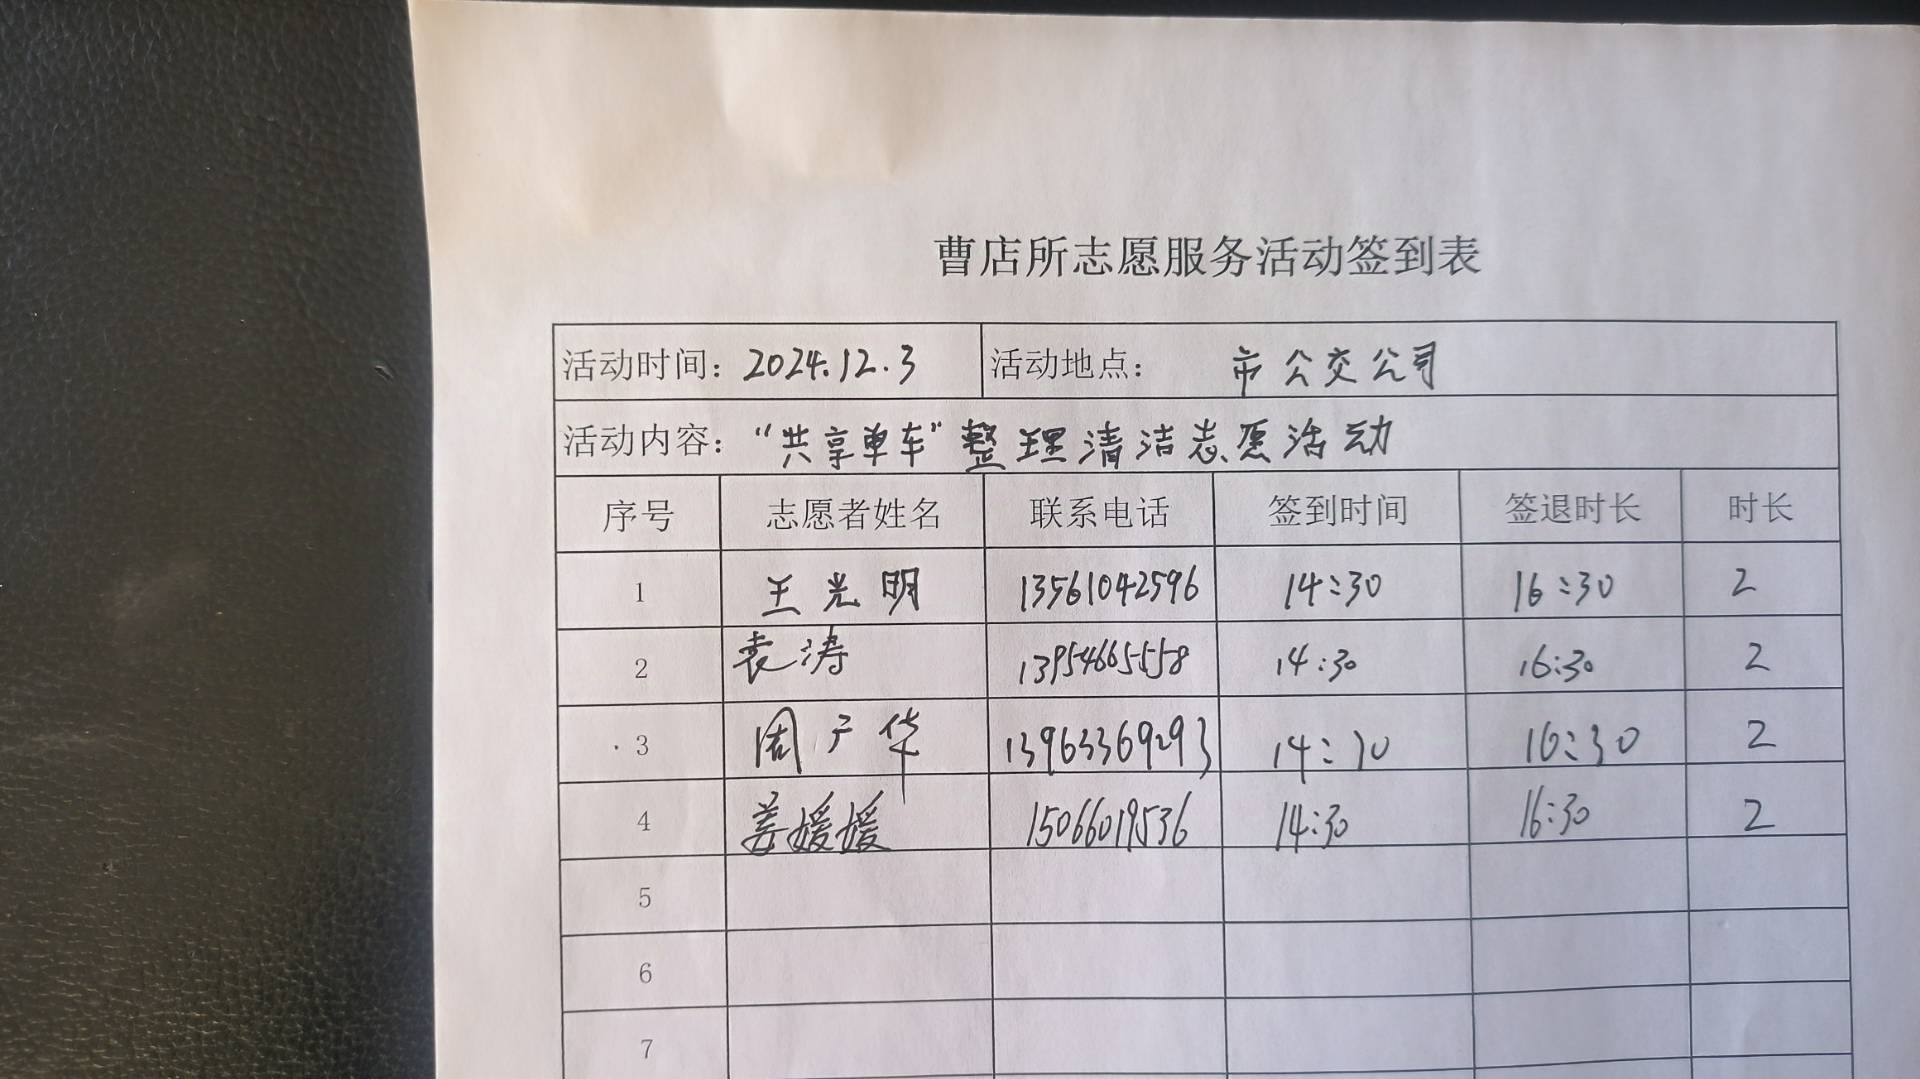 曹店所志愿服务活动签到表
活动时间：2024.12.3 活动地点： 市公交公司
活动内容：“共享单车”整理清洁志愿活动
序号 志愿者姓名 联系电话 签到时间 签退时长 时长
1 王光明 13561042596 14:30 16:30 2
2 袁涛 13954665558 14:30 16:30 2
3 周广华 13963369293 14:30 16:30 2
4 姜媛媛 15066019536 14:30 16:30 2
5
6
7